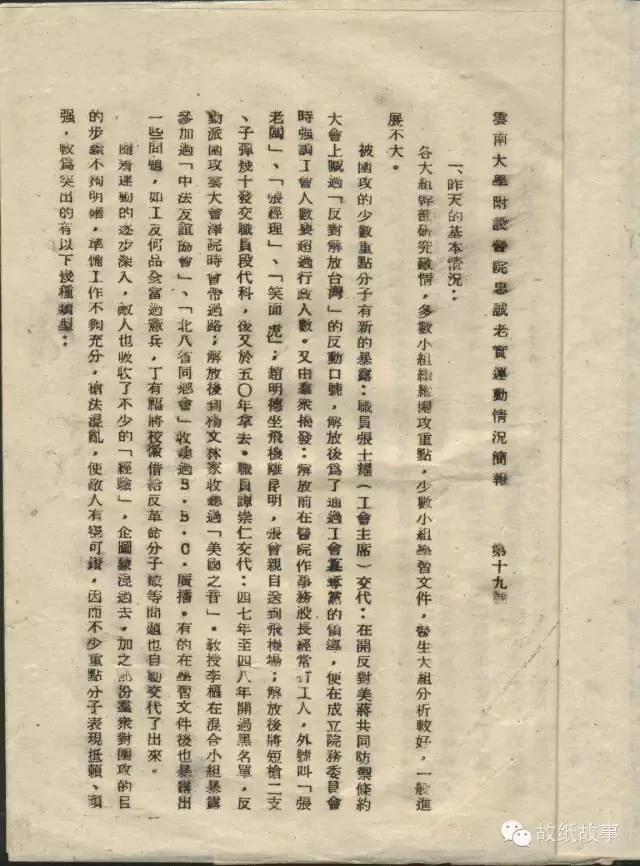 雲南大學附設醫院忠誠老實運動情況簡報 第十九號
一、昨天的基本情況：
各大組幹部研究敵情，多數小組繼續圍攻重點，少數小組學習文件，醫生大組分析較好，一般進
展不大。
被圍攻的少數重點分子有新的暴露：職員張士鑑（工會主席）交代：在開反對美蔣共同防禦條約
大會上喊過「反對解放台灣」的反動口號，解放後爲了通過工會篡奪黨的領導，便在成立院務委員會
時强調工會人數要超過行政人數。又由羣衆揭發：解放前在醫院作事務股長經常打工人，外號叫「張
老闆」、「張經理」、「笑面虎」；趙明德坐飛機離昆明，張曾親自送到飛機場；解放後將短槍二支
、子彈幾十發交職員段代科，後又於五〇年拿去。職員譚崇仁交代：四七年至四八年開過黑名單，反
動派圍攻雲大會澤院時會帶過路；解放後到楊文林家收聽過「美國之音」。教授李樞在混合小組暴露
參加過「中法友誼協會」、「北八省同鄉會」收聽過B・B・C・廣播。有的在學習文件後也暴露出
一些問題，如工友何品全當過憲兵，丁有福將校徽借給反革命分子 等問題也自動交代了出來。
隨着運動的逐步深入，敵人也吸收了不少的「經驗」，企圖蒙混過去。加之部份羣衆對圍攻的目
的步驟不夠明確，準備工作不夠充分，槍法混亂，使敵人有空可鑽，因而不少重點分子表現抵賴、頑
强，較爲突出的有以下幾種類型：
故纸故事